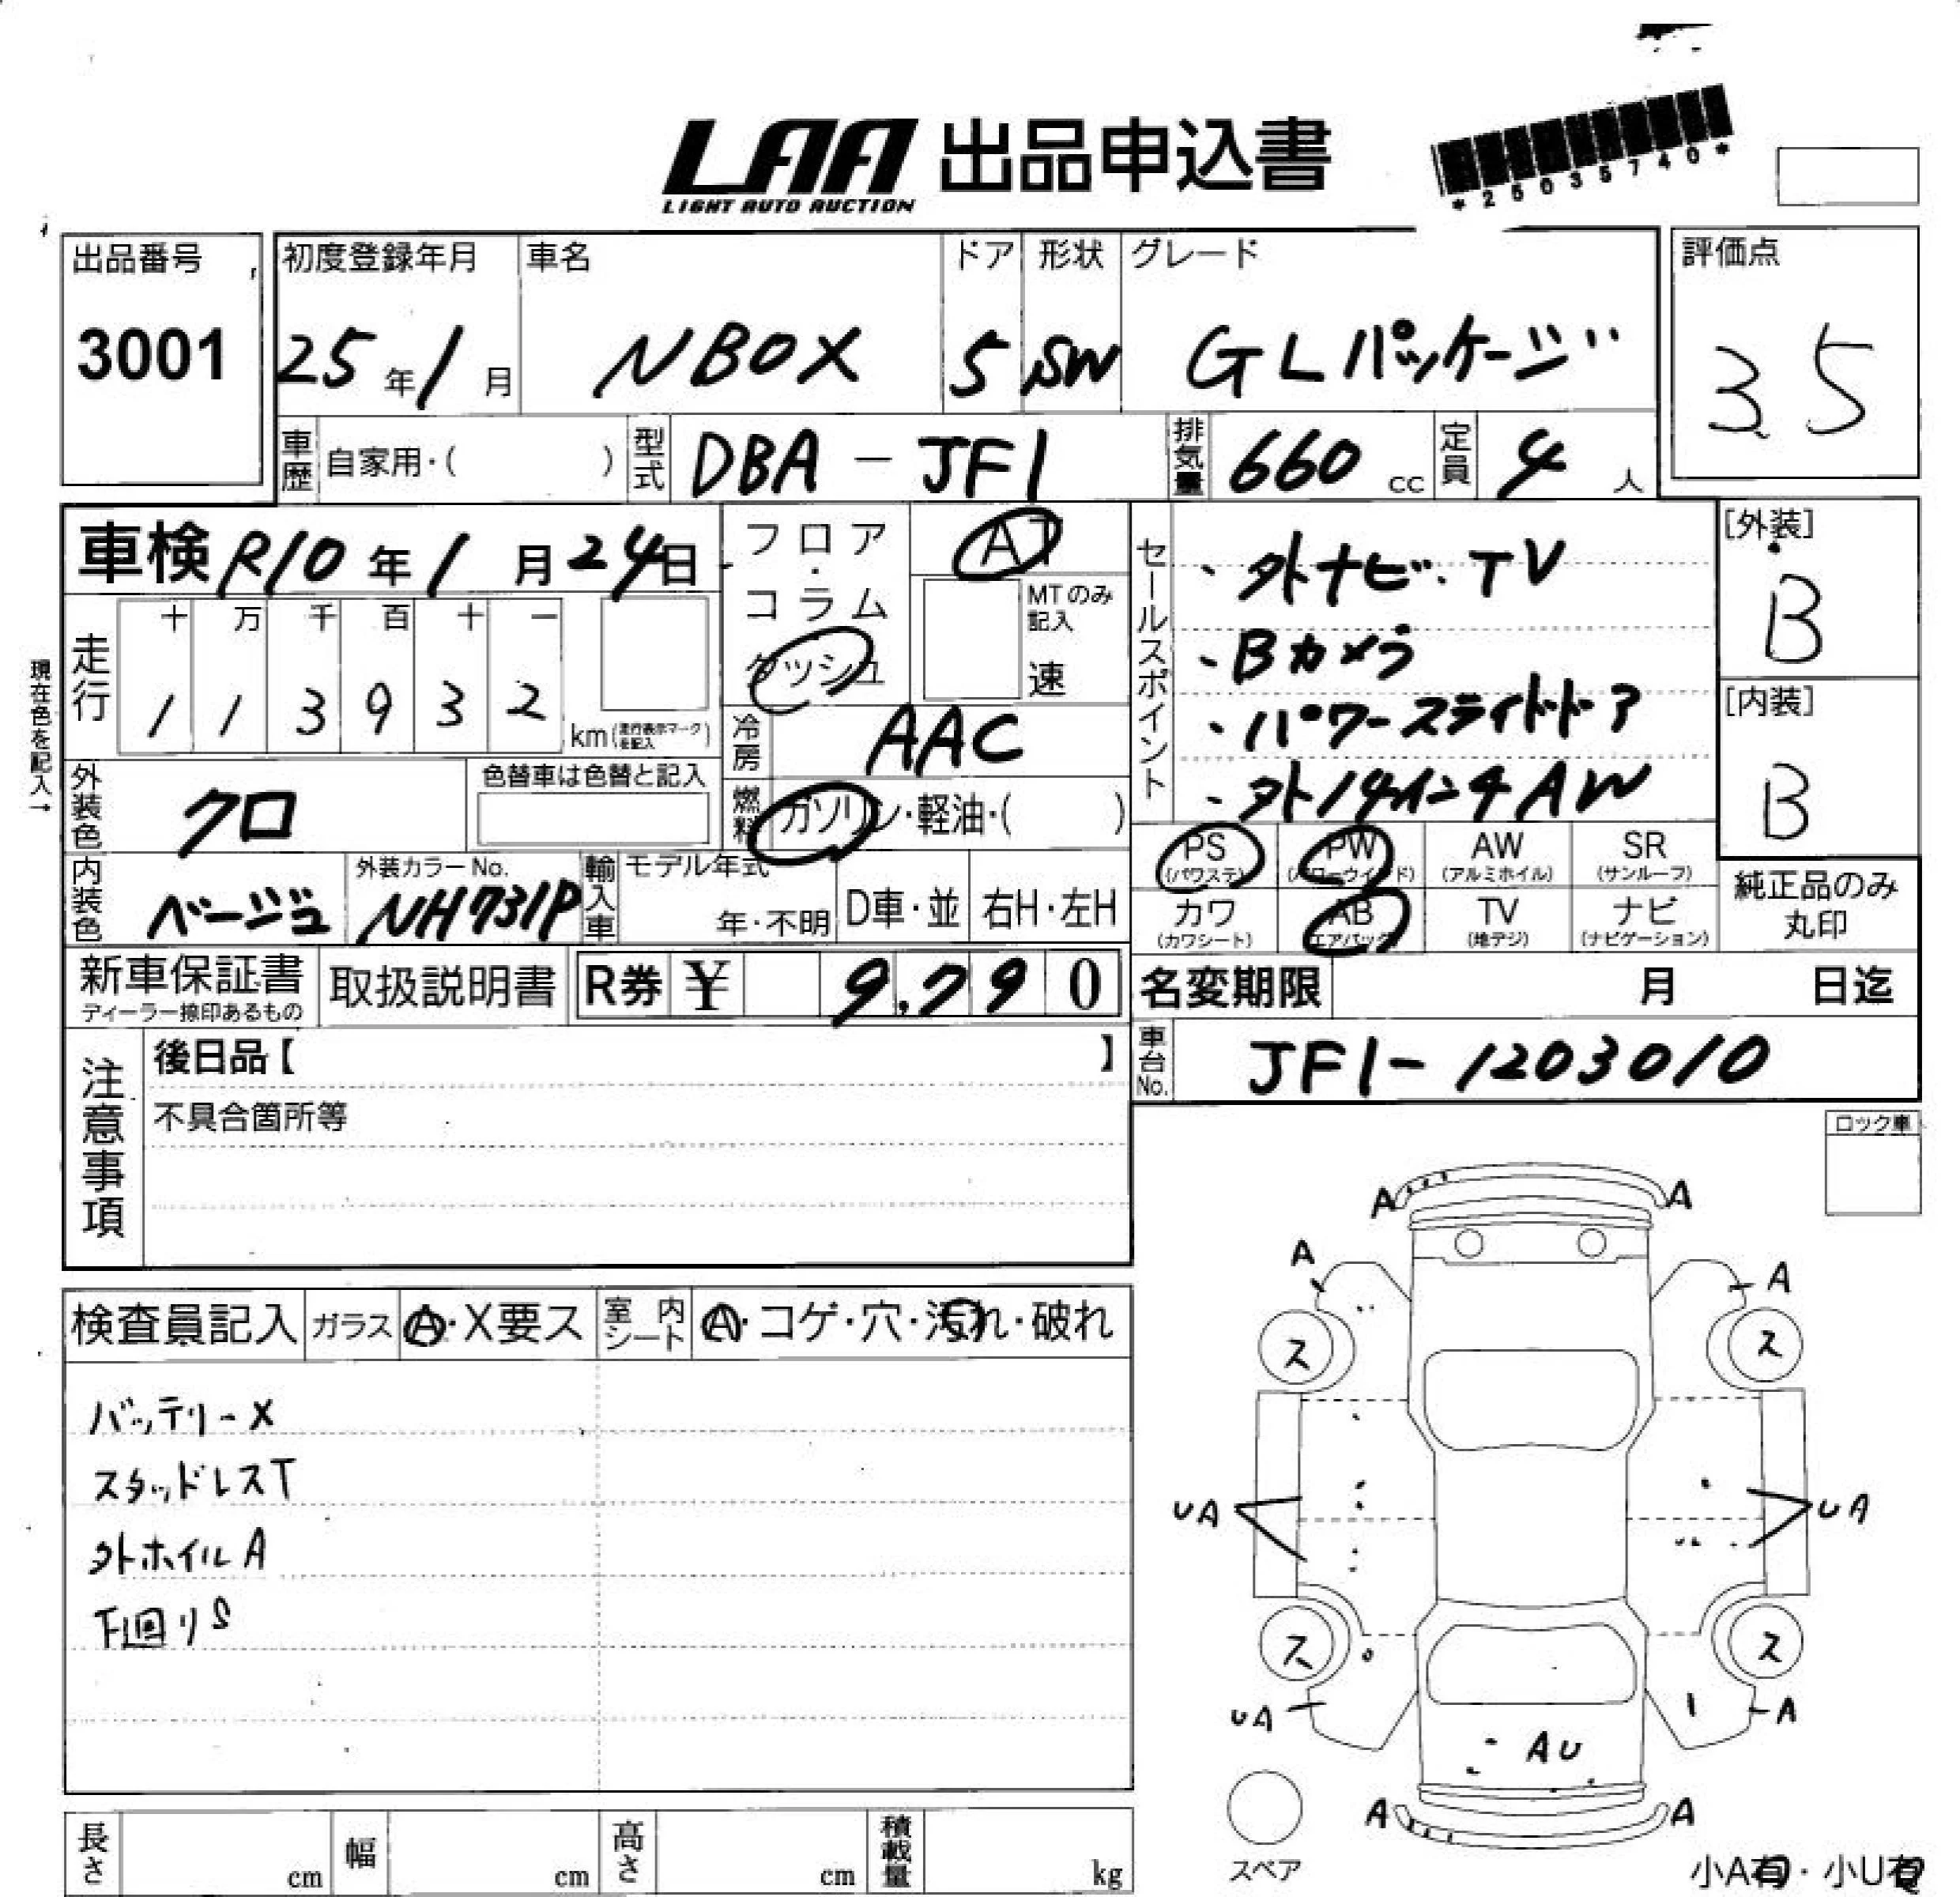 LAA 出品申込書
LIGHT AUTO AUCTION
*25035740*
出品番号 3001
初度登録年月 25年1月
車名 NBOX
ドア 5
形状 SW
グレード GLパッケージ
評価点 3.5
車歴 自家用・( )
型式 DBA-JF1
排気量 660 cc
定員 4 人
車検 R10年1月24日
フロア・コラム ダッシュ
AT
MTのみ記入 速
セールスポイント
・外ナビ・TV
・Bカメラ
・パワースライドドア
・外14インチAW
[外装] B
[内装] B
走行 十 万 千 百 十 一
1 1 3 9 3 2 km(走行表示マークを記入)
現在色を記入→
冷房 AAC
外装色 クロ
色替車は色替と記入
燃料 ガソリン・軽油・( )
PS (パワステ) PW (パワーウインド) AW (アルミホイル) SR (サンルーフ)
カワ (カワシート) AB (エアバック) TV (地デジ) ナビ (ナビゲーション)
純正品のみ丸印
内装色 ベージュ
外装カラーNo. NH731P
輸入車 モデル年式 年・不明 D車・並 右H・左H
新車保証書 ディーラー捺印あるもの
取扱説明書
R券 ¥ 9,790
名変期限 月 日迄
車台No. JF1-1203010
注意事項
後日品【 】
不具合箇所等
ロック車
検査員記入 ガラス A・X要ス 室内シート A・コゲ・穴・汚れ・破れ
バッテリーX
スタッドレスT
外ホイルA
下回りS
A A
A A
ス ス
UA UA
ス ス
UA A
AU
A A
スペア
小A有・小U有
長さ cm 幅 cm 高さ cm 積載量 kg